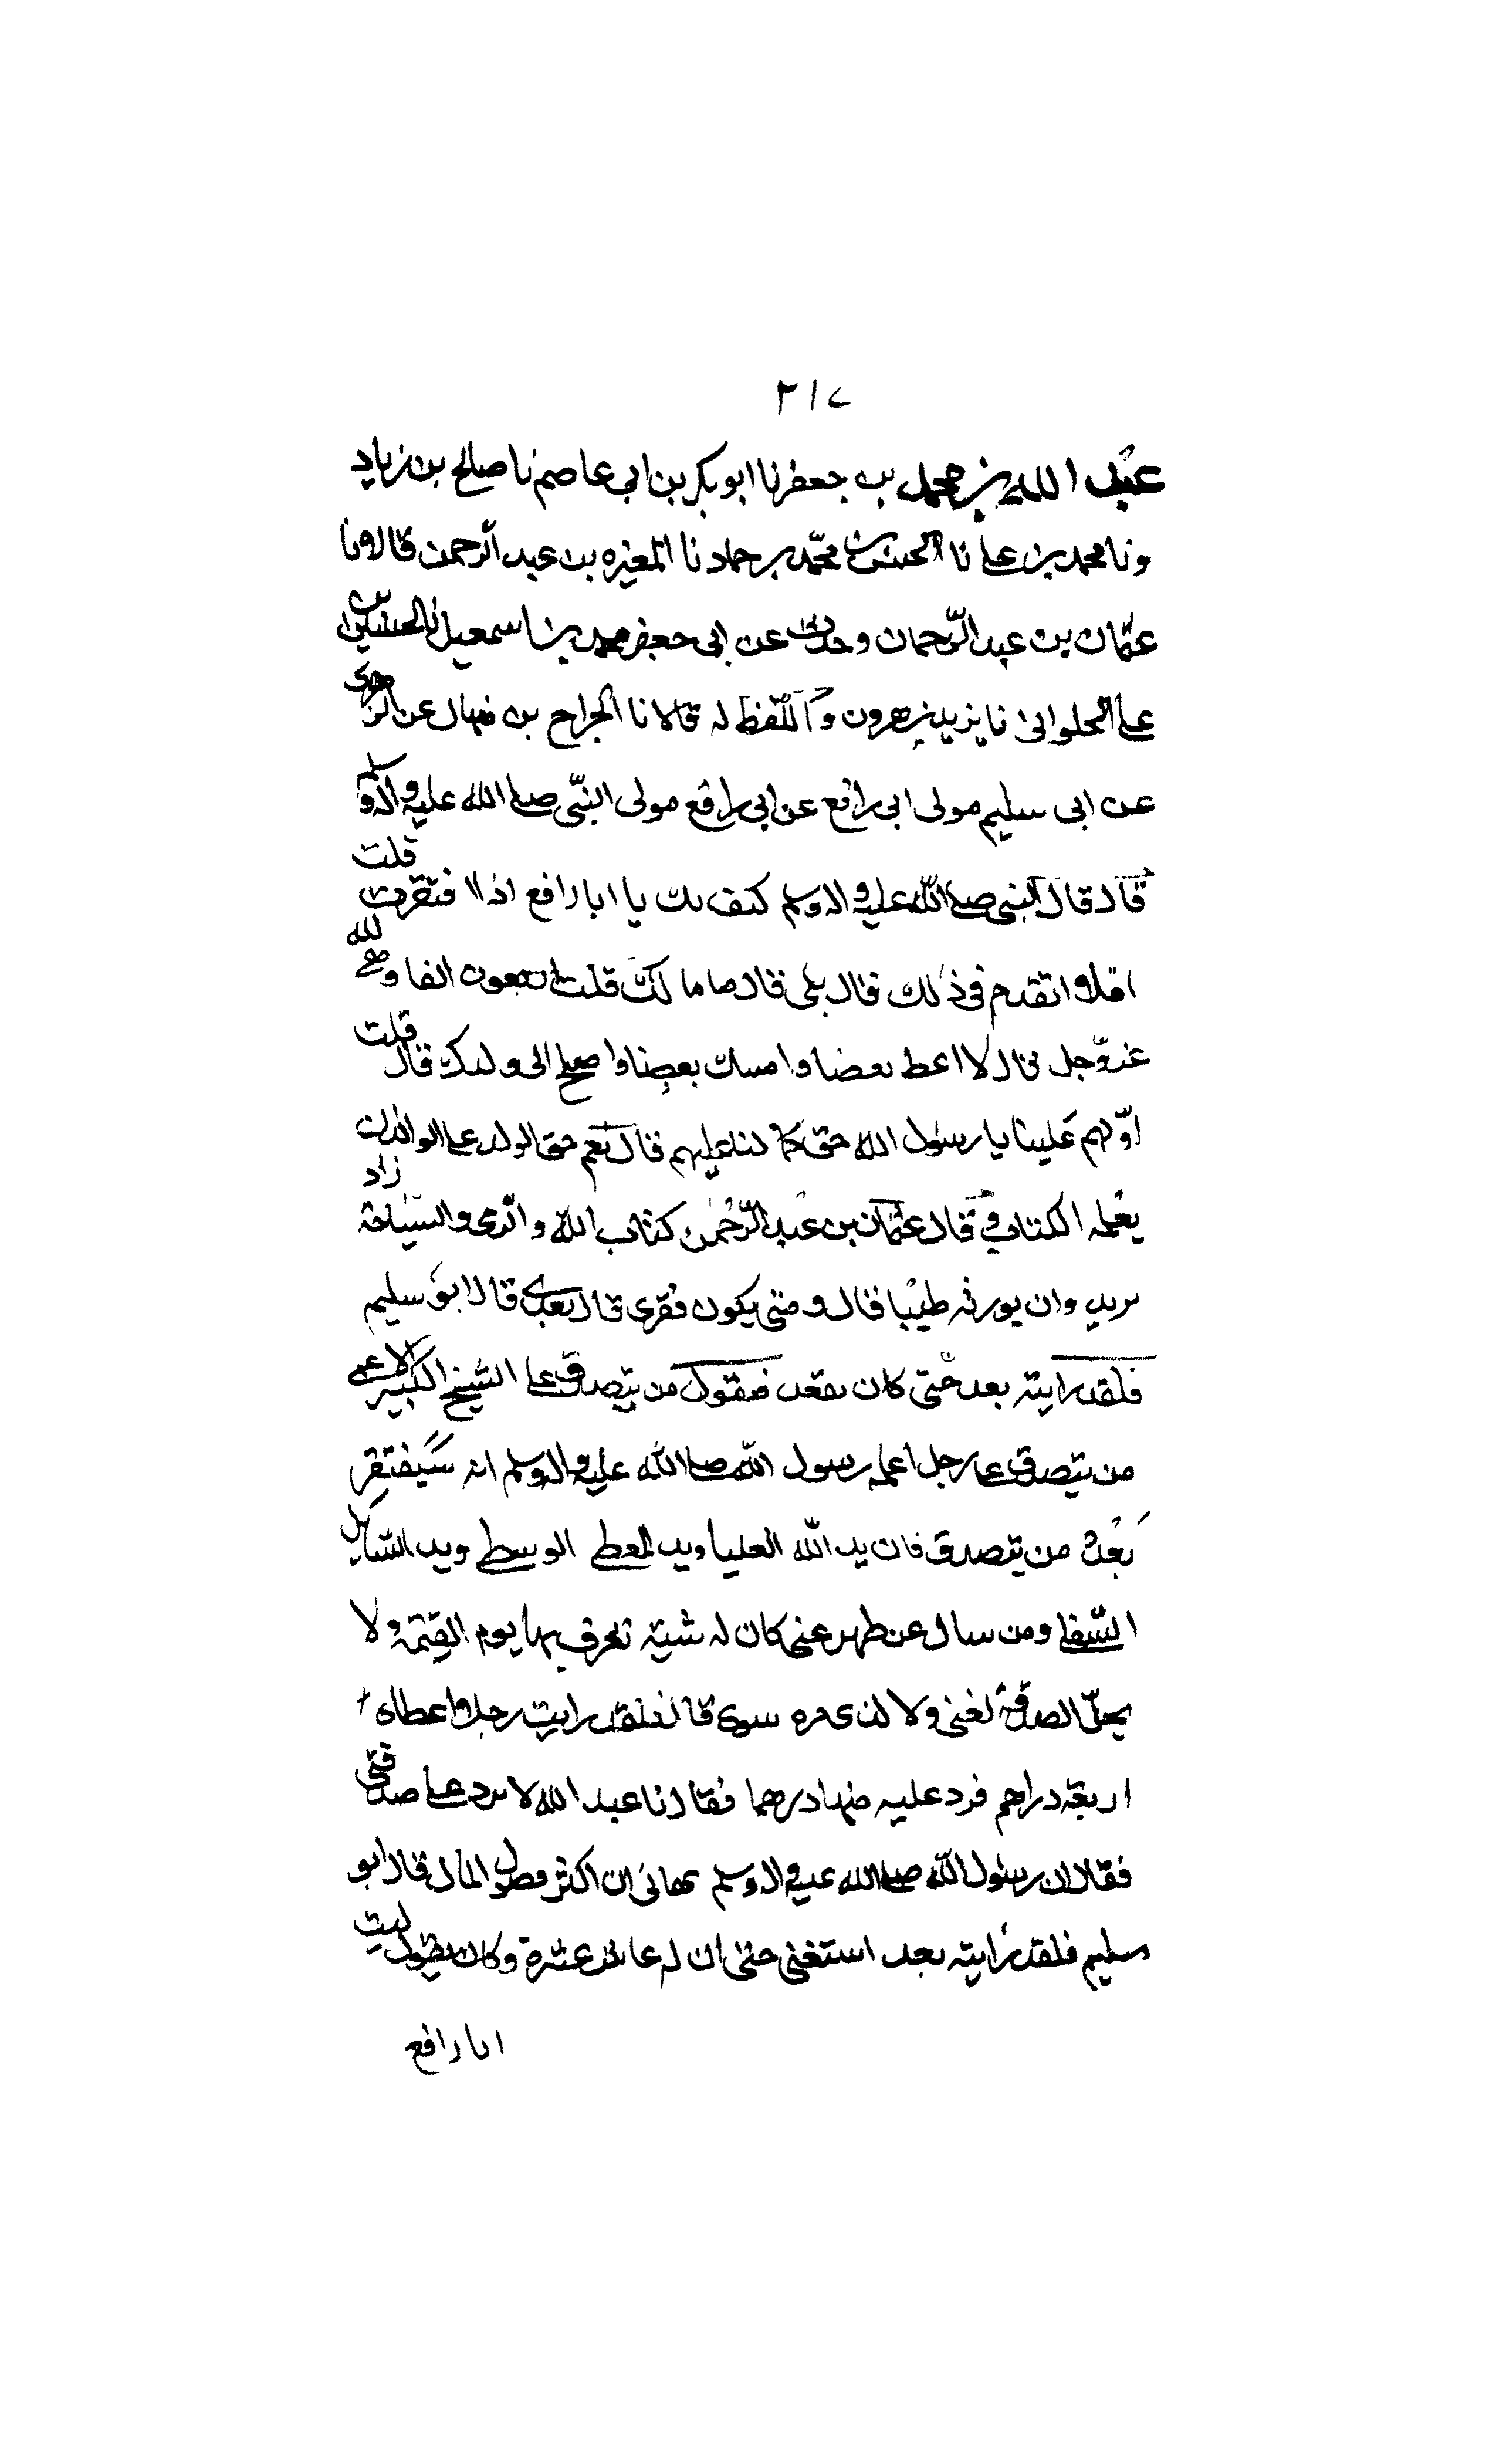 ٢١٧
عبد الله بن محمد بن جعفر نا ابو بكر بن ابى عاصم نا صالح بن زياد
ونا محمد بن على نا الحسين بن محمد بن حماد نا المغيره بن عبد الرحمن قالا ونا
عثمان بن عبد الرحمان وحدثت عن ابى جعفر محمد بن اسمعيل نا الحسن بن
على الحلوانى نا يزيد بن هرون واللفظ له قالا نا الجراح بن منهال عن الزهرى
عن ابى سليم مولى ابى رافع عن ابى رافع مولى النبى صلى الله عليه واله وسلم
قال قال النبى صلى الله عليه واله وسلم كيف بك يا ابا رافع اذا افتقرت قلت
افلا اتقدم فى ذلك قال بلى قال ما مالك قلت اربعون الفا وهى لله
عز وجل قال لا اعط بعضا وامسك بعضا واصلح الى ولدك قال قلت
اولهم علينا يا رسول الله حق كما لنا عليهم قال نعم حق الولد على الوالد ان
يعلمه الكتاب وقال عثمان بن عبد الرحمن كتاب الله والرمى والسباحة زاد
يزيد وان يورثه طيبا قال ومتى يكون فقرى قال بعدى قال ابو سليم
فلقد رايته بعد حتى كان يقعد فيقول من يتصدق على الشيخ الكبير الاعمى
من يتصدق على رجل اعلمه رسول الله صلى الله عليه واله وسلم انه سيفتقر
بعده من يتصدق فان يد الله العليا ويد المعطى الوسطى ويد السايل
السفلى ومن سال عن ظهر غنى كان له شية تعرف بها يوم القيمة ولا
يحل الصدقة لغنى ولا لذى مره سوى قال فلقد رايت رجلا اعطاه
اربعة دراهم فرد عليه منها درهما فقال يا عبد الله لا ترد على صدقتى
فقال ان رسول الله صلى الله عليه واله وسلم نهانى ان اكثر فضول المال قال ابو
سليم فلقد رايته بعد استغنى حتى ان له عاشر عشرة وكان يقول ليت
ابا رافع